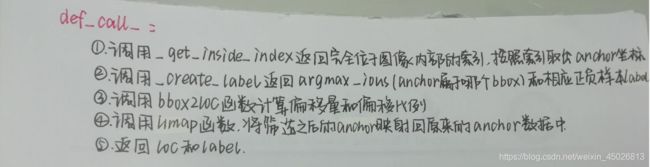 def_call_:
①.调用_get_inside_index返回完全位于图像内部的索引,按照索引取出anchor坐标
②.调用_create_label返回argmax_ious(anchor属于哪个bbox)和相应正负样本label
③.调用bbox2loc函数计算偏移量和偏移比例
④.调用umap函数,将筛选之后的anchor映射回原来的anchor数据中
⑤.返回loc和label.
https://blog.csdn.net/weixin_45026813